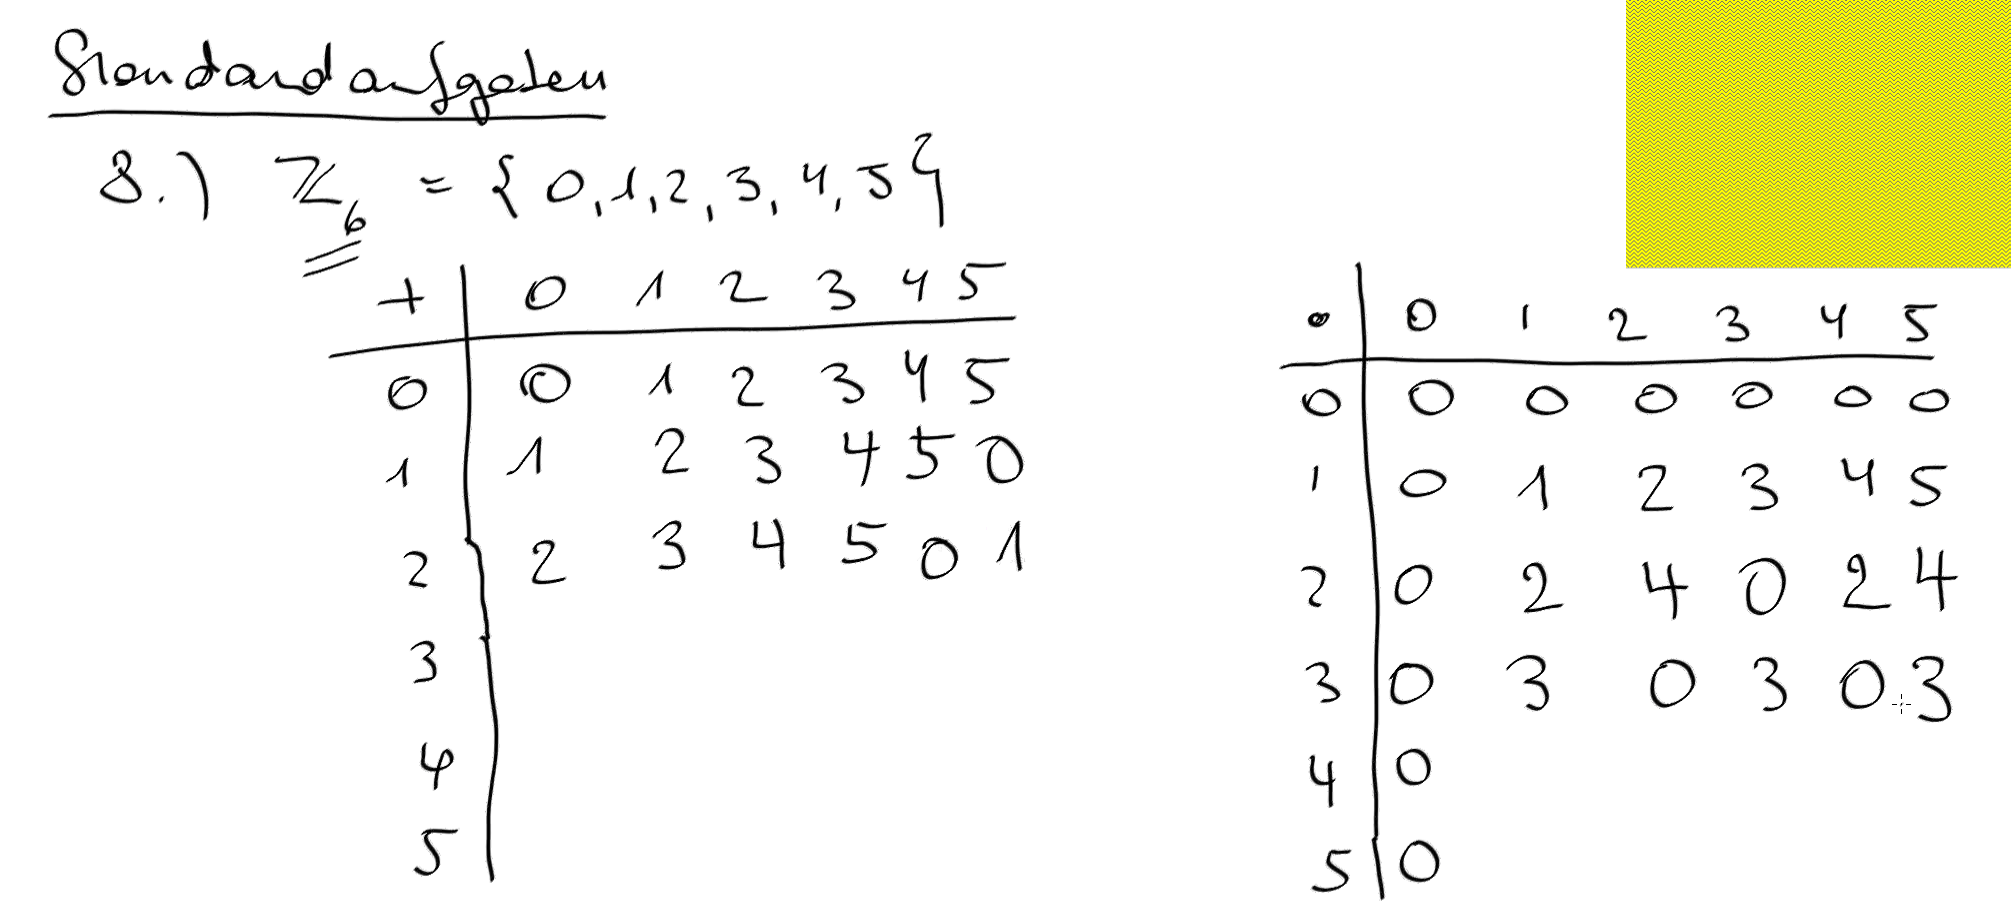 Standardaufgaben
8.) ℤ₆ = {0,1,2,3,4,5}
+ | 0 1 2 3 4 5
0 | 0 1 2 3 4 5
1 | 1 2 3 4 5 0
2 | 2 3 4 5 0 1
3 |
4 |
5 |
• | 0 1 2 3 4 5
0 | 0 0 0 0 0 0
1 | 0 1 2 3 4 5
2 | 0 2 4 0 2 4
3 | 0 3 0 3 0 3
4 | 0
5 | 0